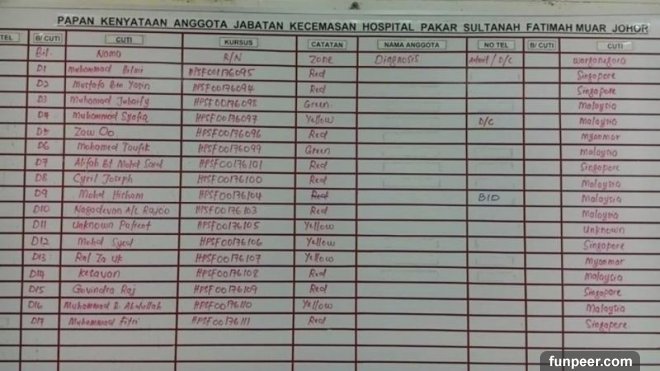 PAPAN KENYATAAN ANGGOTA JABATAN KECEMASAN HOSPITAL PAKAR SULTANAH FATIMAH MUAR JOHOR
TEL B/ CUTI CUTI KURSUS CATATAN NAMA ANGGOTA NO TEL B/ CUTI CUTI
Bil. Nama R/N ZONE Diagnosis Admit / D/C Warganegara
D1 Muhammad HPSF00176095 Red Singapore
D2 Mustafa Bin Yasin HPSF00176094 Red Singapore
D3 Muhamad HPSF00176098 Green Malaysia
D4 Muhammad Syafiq HPSF00176097 Yellow D/C Malaysia
D5 Zaw Oo HPSF00176096 Red Myanmar
D6 Mohamed Taufik HPSF00176099 Green Malaysia
D7 Bt Mohd HPSF00176101 Red Singapore
D8 Cyril Joseph HPSF00176100 Red Malaysia
D9 Mohd Hisham HPSF00176104 Red BID Malaysia
D10 Nagadevan A/L Rajoo HPSF00176103 Red Malaysia
D11 Unknown Patient HPSF00176105 Yellow Unknown
D12 Mohd Syed HPSF00176106 Yellow Singapore
D13 Ral Za Uk HPSF00176107 Yellow Myanmar
D14 Kesavan HPSF00176108 Red Malaysia
D15 Govindra Raj HPSF00176109 Red Singapore
D16 Muhammad B. Abdullah HPSF00176110 Yellow Malaysia
D17 Muhammad Fitri HPSF00176111 Red Singapore
funpeer.com